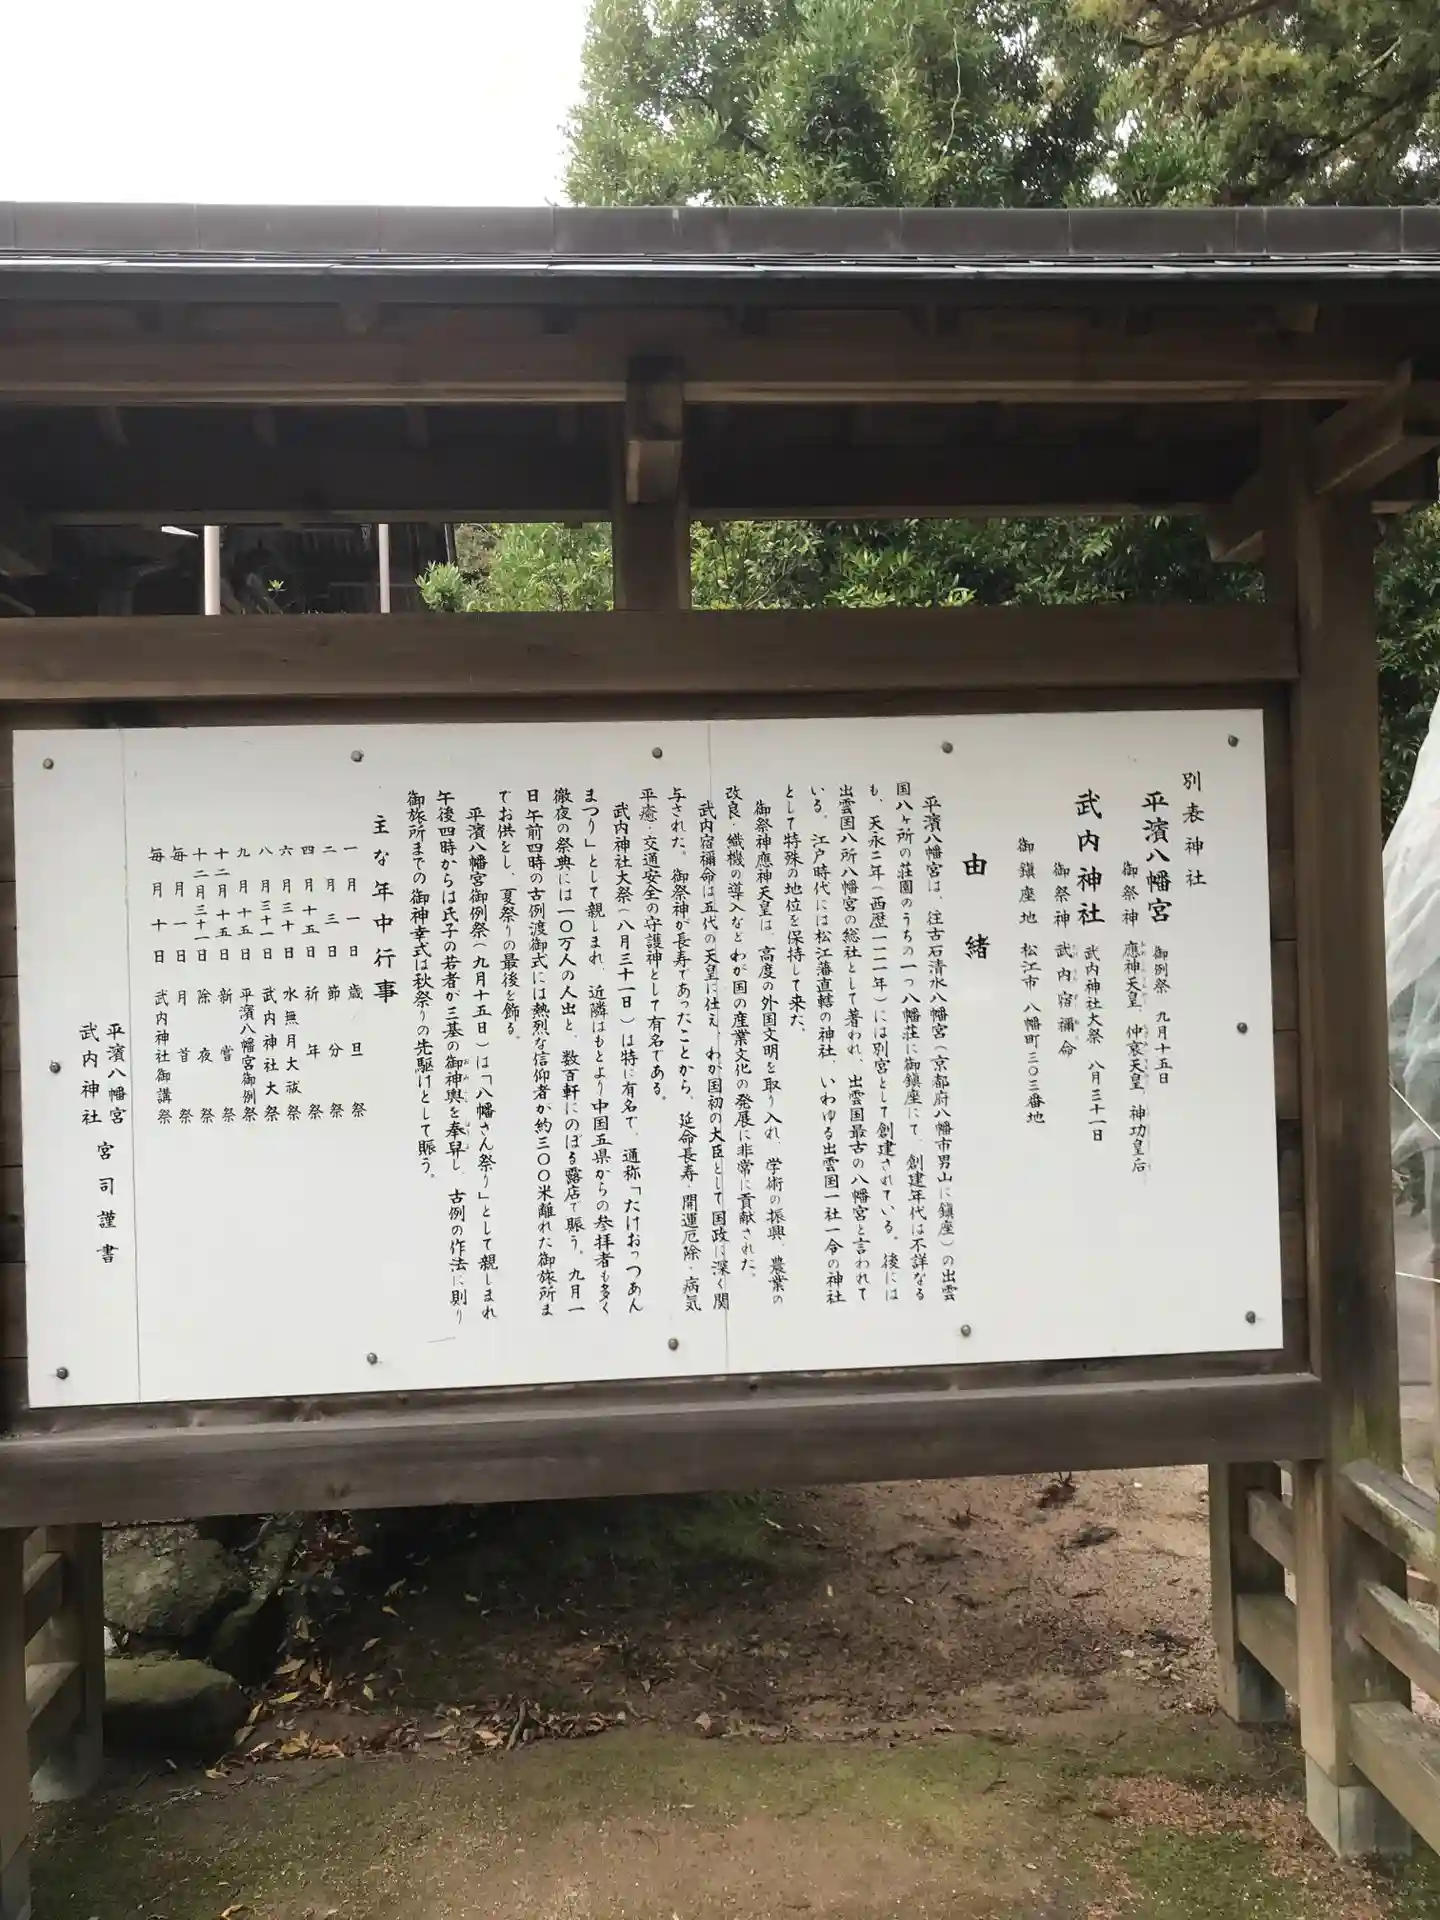 別表神社
平濱八幡宮 御例祭 九月十五日
御祭神 應神天皇、仲哀天皇、神功皇后
武内神社 武内神社大祭 八月三十一日
御祭神 武内宿禰命
御鎮座地 松江市八幡町三〇三番地
由緒
平濱八幡宮は、往古石清水八幡宮(京都府八幡市男山に鎮座)の出雲
国八ヶ所の荘園のうちの一つ八幡荘に御鎮座にて、創建年代は不詳なる
も、天永二年(西歴一一一一年)には別宮として創建されている。後には
出雲国八所八幡宮の総社として著われ、出雲国最古の八幡宮と言われて
いる。江戸時代には松江藩直轄の神社、いわゆる出雲国一社一令の神社
として特殊の地位を保持して来た。
御祭神應神天皇は、高度の外国文明を取り入れ、学術の振興、農業の
改良・織機の導入などわが国の産業文化の発展に非常に貢献された。
武内宿禰命は五代の天皇に仕え、わが国初の大臣として国政に深く関
与された。御祭神が長寿であったことから、延命長寿・開運厄除・病気
平癒・交通安全の守護神として有名である。
武内神社大祭(八月三十一日)は特に有名で、通称「たけおっつあん
まつり」として親しまれ、近隣はもとより中国五県からの参拝者も多く
徹夜の祭典には一〇万人の人出と、数百軒にのぼる露店で賑う。九月一
日午前四時の古例渡御式には熱烈な信仰者が約三〇〇米離れた御旅所ま
でお供をし、夏祭りの最後を飾る。
平濱八幡宮御例祭(九月十五日)は「八幡さん祭り」として親しまれ
午後四時からは氏子の若者が三基の御神輿を奉舁し、古例の作法に則り
御旅所までの御神幸式は秋祭りの先駆けとして賑う。
主な年中行事
一月一日 歳旦祭
二月三日 節分祭
四月十五日 祈年祭
六月三十日 水無月大祓祭
八月三十一日 武内神社大祭
九月十五日 平濱八幡宮御例祭
十二月十五日 新嘗祭
十二月三十一日 除夜祭
毎月一日 月首祭
毎月十日 武内神社御講祭
平濱八幡宮
武内神社 宮司謹書